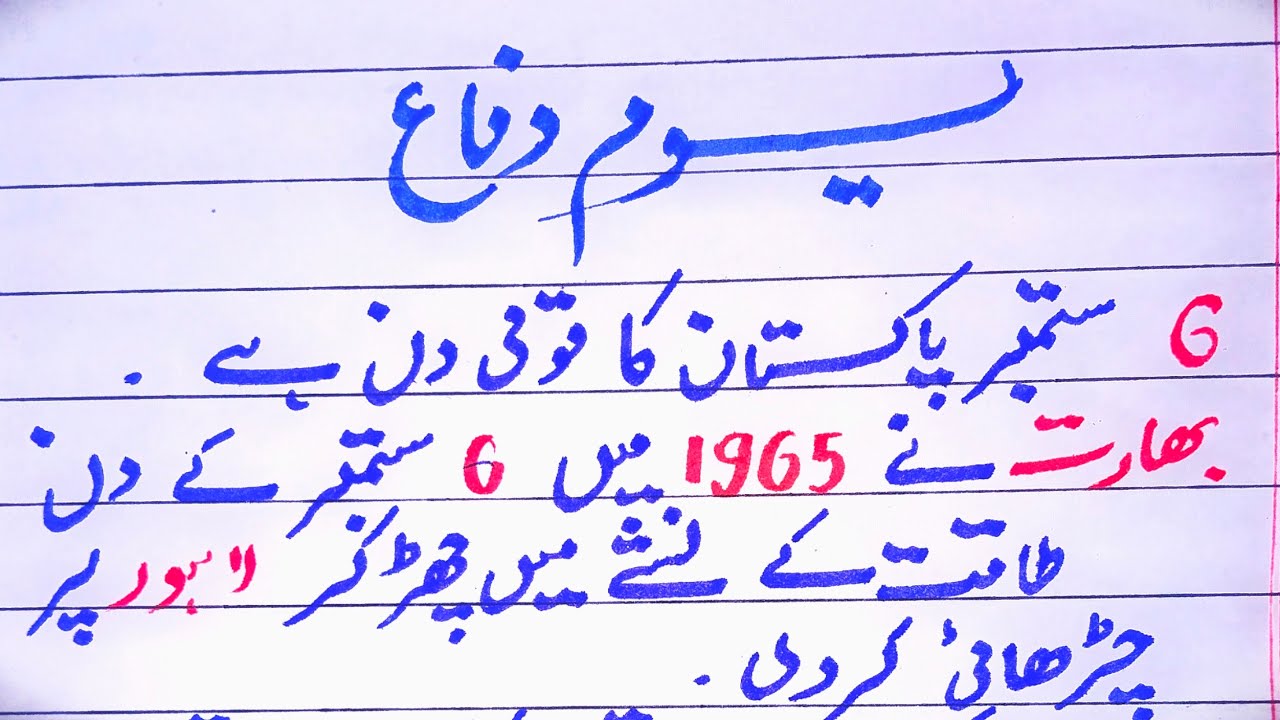 یوم دفاع
6 ستمبر پاکستان کا قومی دن ہے .
بھارت نے 1965 میں 6 ستمبر کے دن
طاقت کے نشے میں چھڑ کر لاہور پر
چڑھائی کر دی .